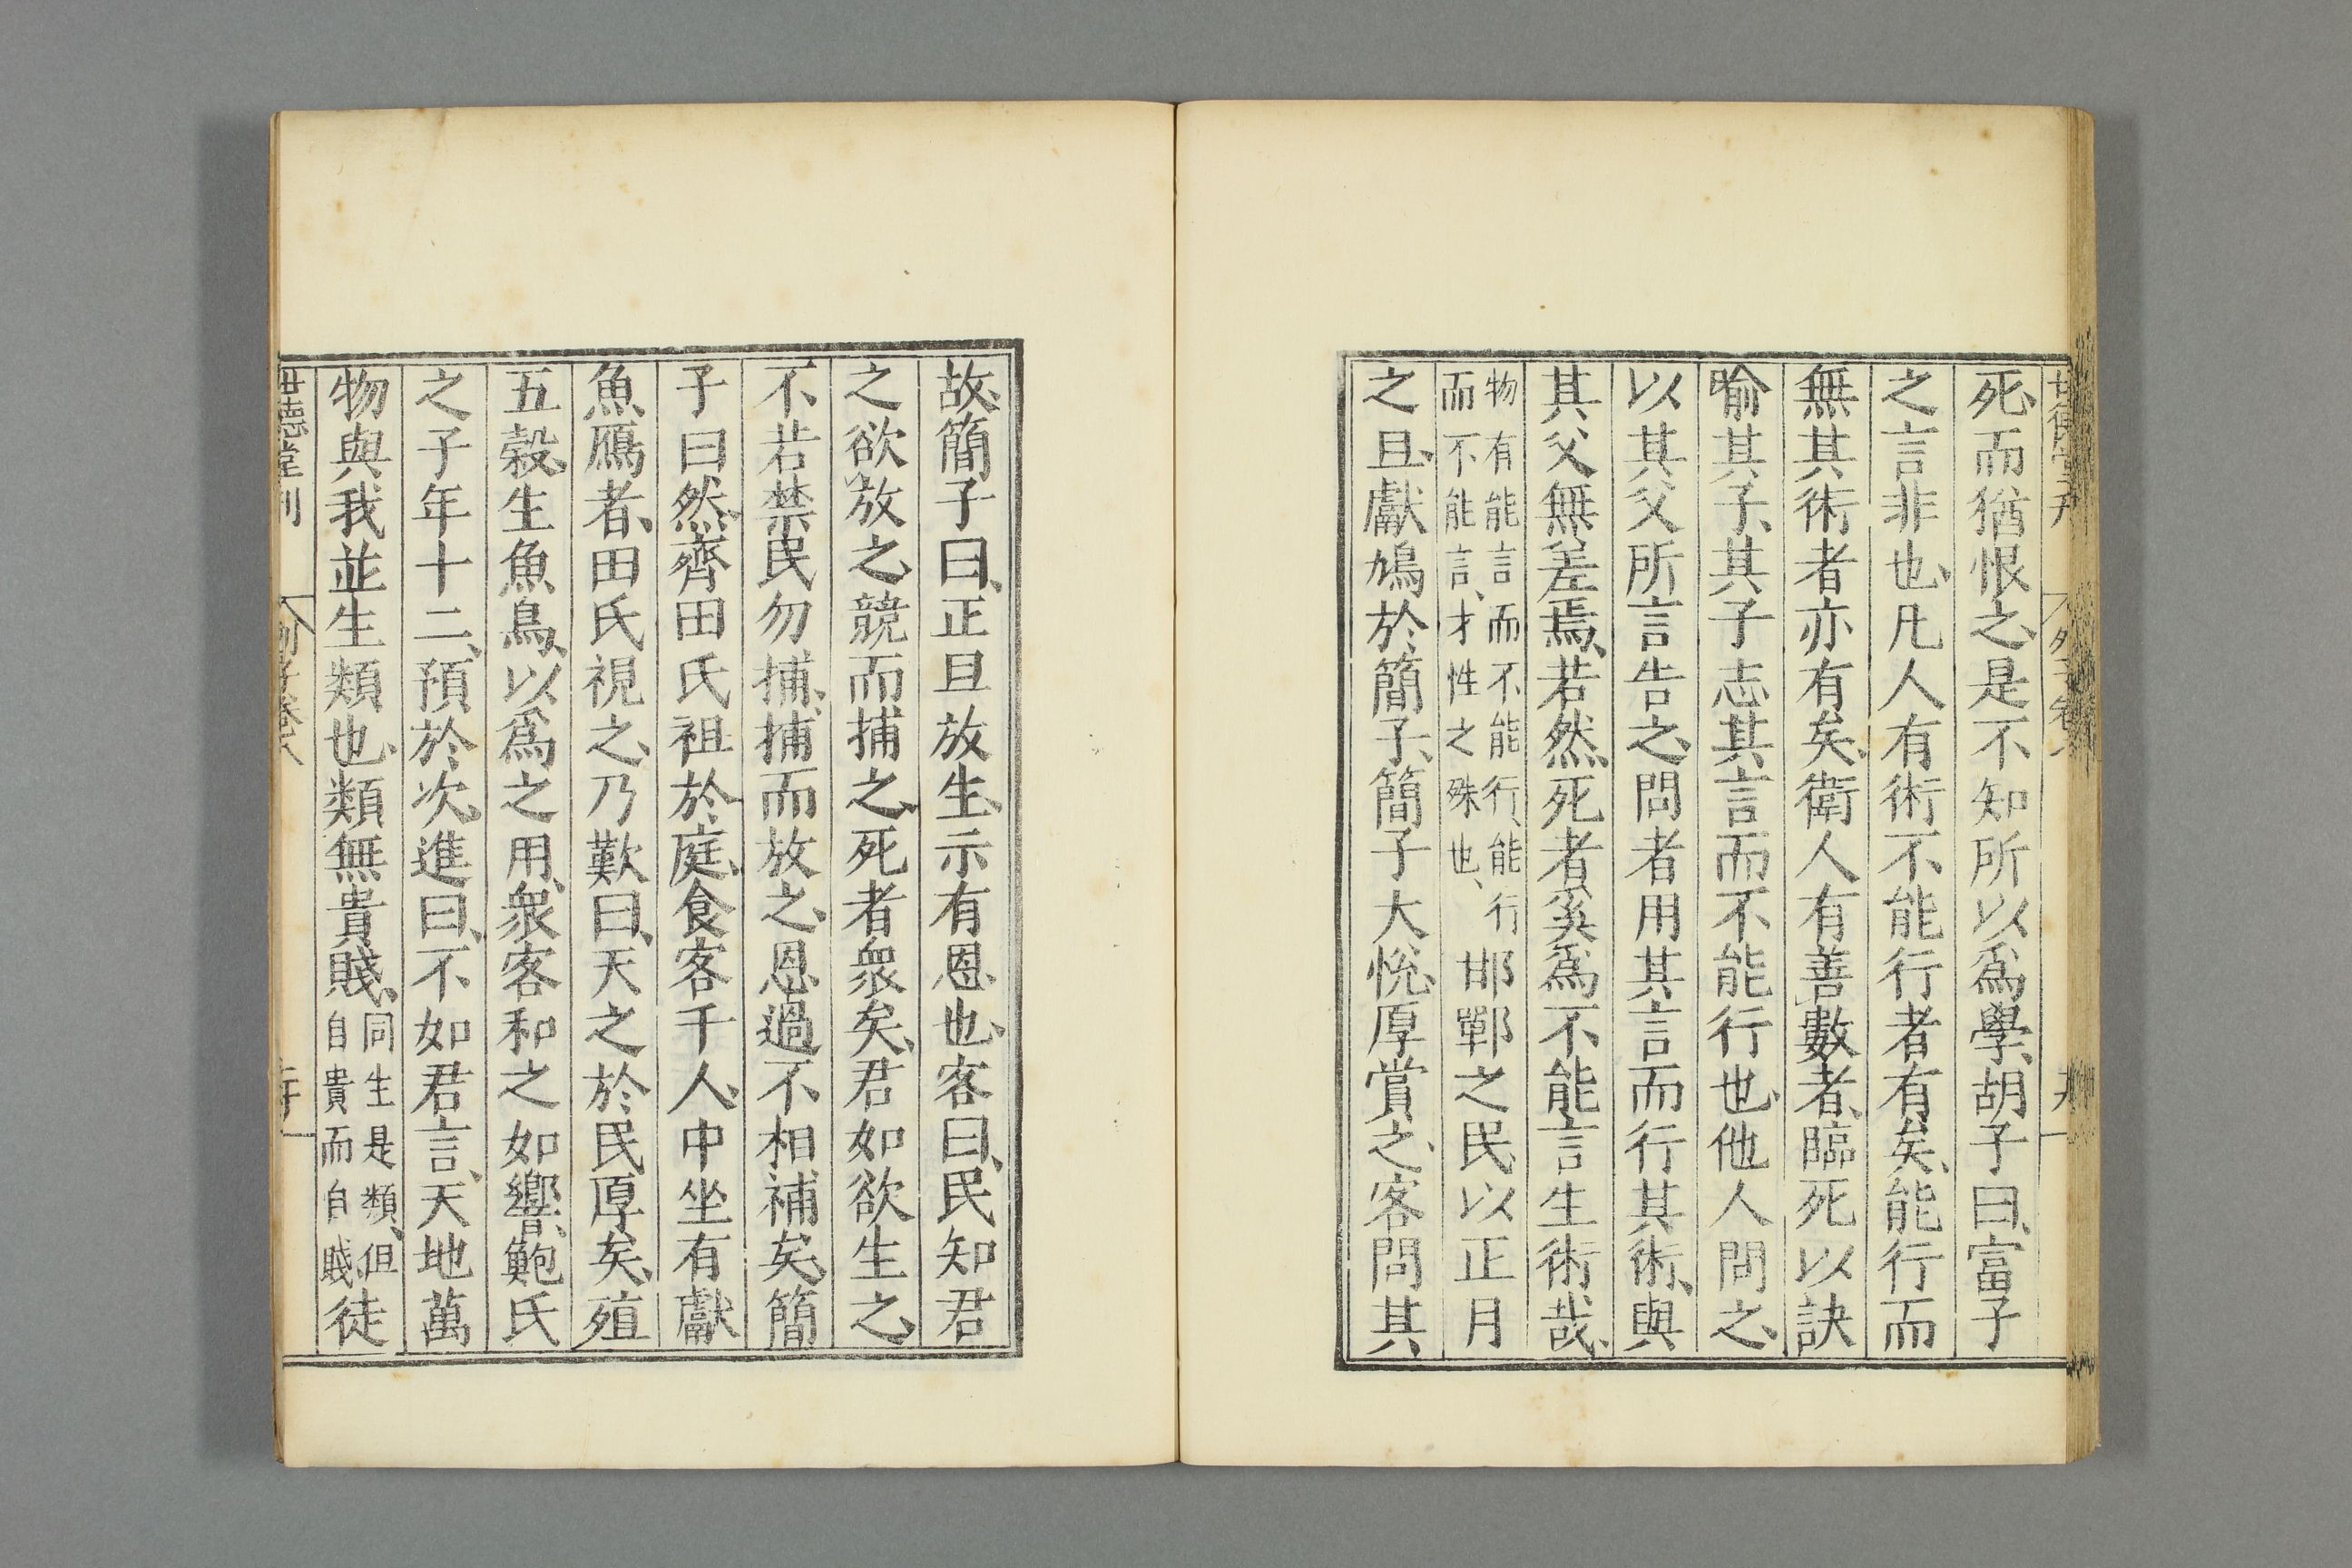 死而猶恨之是不知所以爲學胡子曰富子
之言非也凡人有術不能行者有矣能行而
無其術者亦有矣衛人有善數者臨死以訣
喻其子其子志其言而不能行也他人問之
以其父所言告之問者用其言而行其術與
其父無差焉若然死者奚爲不能言生術哉
物有能言而不能行能行
而不能言才性之殊也
邯鄲之民以正月
之旦獻鳩於簡子簡子大悅厚賞之客問其
故簡子曰正旦放生示有恩也客曰民知君
之欲放之競而捕之死者衆矣君如欲生之
不若禁民勿捕捕而放之恩過不相補矣簡
子曰然齊田氏祖於庭食客千人中坐有獻
魚鴈者田氏視之乃歎曰天之於民厚矣殖
五穀生魚鳥以爲之用衆客和之如響鮑氏
之子年十二預於次進曰不如君言天地萬
物與我並生類也類無貴賤
同生是類但
自貴而自賤
徒
世德堂刊
列子卷八